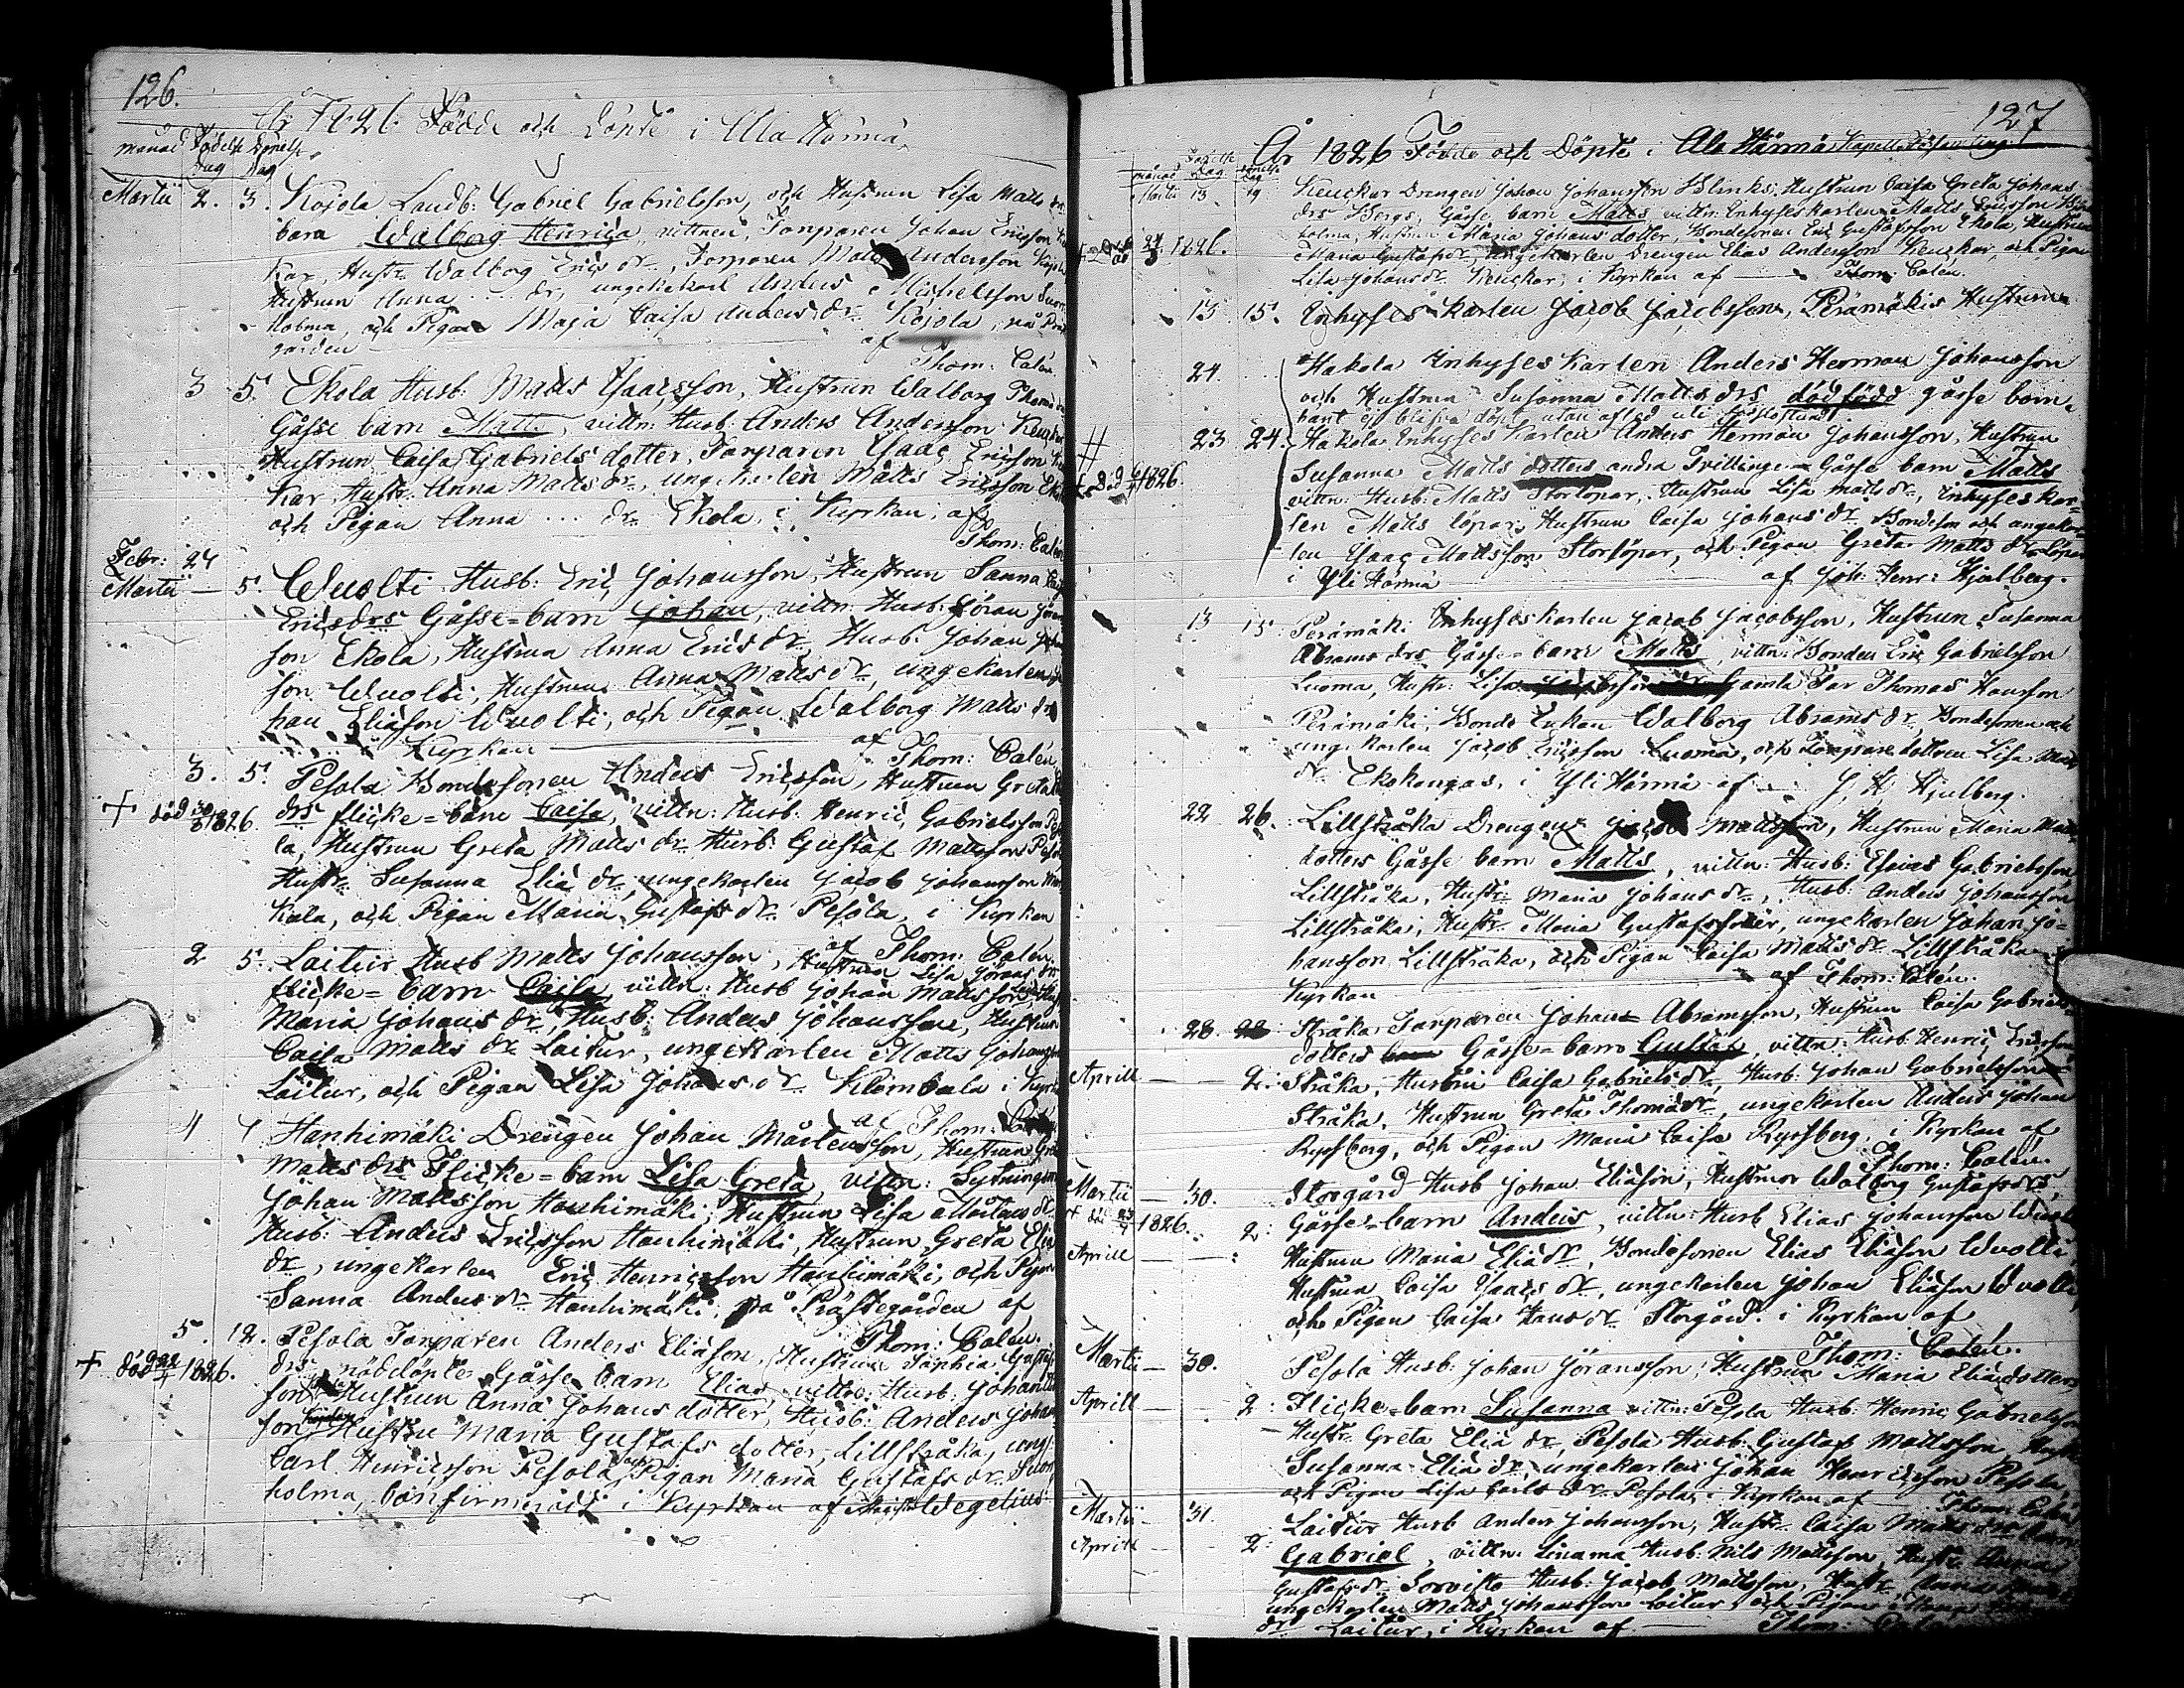 126.
År 1826 Födde och Döpte i Ala Härmä
månad Födelse Döpelse
Dag Dag
Martii 2. 3. Kojola Landb: Gabriel Gabrielsson, och Hustrun Lisa Matts
barn Walborg Henrica, vittnen, Torparen Johan Ericsson
Kar, Hustr. Walborg Erics dr, Torparen Matts Andersson
Hustrun Anna .... dr, ungekarl Anders Michelsson
holma, och Pigan Maja Caisa Anders dr Kojola, på
gården af
Thom: Calén
3 5. Ekola Husb: Matts Isaacsson, Hustrun Walborg
Gåsse barn Matts, vittn: Husb. Anders Andersson
Hustrun Caisa Gabriels dotter, Torparen Isaac Ericsson
Kar Hustr. Anna Matts dr, ungekarlen Matts Ericsson
och Pigan Anna ... dr Ekola, i Kyrkan, af
Thom: Calén
Febr: 24
Martii — 5. Wuolti Husb: Eric Johansson, Hustrun Sanna
Ericsdrs Gåsse=barn Johan, vittn: Husb: Jöran
son Ekola, Hustrun Anna Erics dr, Husb: Johan
son Wuolti, Hustrun Anna Matts dr, ungekarlen
han Eliasson Wuolti, och Pigan Walborg Matts dr
Kyrkan af Thom: Calén
3. 5. Pesola Bondesonen Anders Ericsson, Hustrun Greta
+ död 30/3 1826. drs flicke=barn Caisa, vittn: Husb: Henric Gabrielsson
la, Hustrun Greta Matts dr Husb: Gustaf Mattsson
Hustr. Susanna Elia dr, ungekarlen Jacob Johansson
kala, och Pigan Maria Gustafs dr Pesola, i Kyrkan
af Thom: Calén.
2 5. Laitur Husb Matts Johansson, Hustrun Lisa Jörans
flicke=barn Caisa, vittn: Husb Johan Mattsson
Maria Johans dr, Husb: Anders Johansson, Hustrun
Caisa Matts dr Laitur, ungekarlen Matts Johansson
Laitur, och Pigan Lisa Johans dr i
af Thom:
4 Hanhimäki Drengen Johan Mårtensson, Hustrun
Matts drs Flicke=barn Lisa Greta, vittn:
Johan Mattsson Hanhimäki, Hustrun Lisa Mårtens dr
Husb: Anders Ericsson Hanhimäki, Hustrun Greta
dr, ungekarlen Eric Henricsson Hanhimäki, och
Sanna Anders dr Hanhimäki, på Prästegården af
Thom: Calén.
5. 12. Pesola Torparen Anders Eliasson, Hustrun Sophia
+ död 22/4 1826. drs nöddöpte Gåsse barn Elias, vittn: Husb: Johan
son Hustrun Anna Johans dotter, Husb: Anders
son Hustru Maria Gustafs dotter, Lillstråka,
Carl Henricsson Pesola, och Pigan Maria Gustafs dr
holma, confirmeradt i Kyrkan af Wegelius
127
År 1826 Födde och Döpte i Ala Härmä Kapell Församling.
månad Dag Dag
Martii 13 19. Keuckar Drengen Johan Johansson Blinks: Hustrun Caisa Greta Johans
drs Bergs, Gåsse barn Matts, vittn: Enhyseskarlen Matts Ericsson
holma, Hustrun Maria Johans dotter, Bondesonen Eric Gustafsson Ekola, Hustrun
1826. Maria Gustafs dr, ungekarlen Drengen Elias Andersson Keuckar, och Pigan
Lisa Johans dr Keuckar, i Kyrkan af — Thom: Calén.
13 15. Enhyses karlen Jacob Jacobsson, Perämäkis Hustrun
24. Hakola Inhyses karlen Anders Herman Johansson
och Hustrun Susanna Matts drs dödfödd gåsse barn
23 24. Hakola Enhyses karlen Anders Herman Johansson, Hustrun
Susanna Matts dotters andra Tvillinge=Gåsse barn Matts
Död 1826. vittn: Husb: Matts Storlöpar, Hustrun Lisa Matts dr, Inhyses kar-
len Matts Löpar, Hustrun Caisa Johans dr Bondeson och ungekar-
len Isaac Mattsson Storlöpar, och Pigan Greta Matts dr Löpar
i Yli Härmä — af Joh: Henr: Hjelberg.
13 15. Perämäki Enhyseskarlen Jacob Jacobsson, Hustrun Susanna
Abrams drs Gåsse=barn Matts, vittn: Bonden Eric Gabrielsson
Luoma, Hustr: Lisa Gamla Far Thomas Hansson
Perämäki, Bonde Enkan Walborg Abrams dr, Bondesonen och
ungkarlen Jacob Ericsson Luoma, och Torpare dottren Lisa
dr Ekokangas, i Yli Härmä af — J H Hjelberg.
22 26. Lillstråka Drengen Jacob Mattsson, Hustrun Maria
dotters Gåsse barn Matts, vittn: Husb: Elias Gabrielsson
Lillstråka, Hustr: Maria Johans dr, Husb: Anders Johansson
Lillstråka, Hustr. Maria Gustafs dotter, ungekarlen Johan Jo=
hansson Lillstråka, och Pigan Caisa Matts dr Lillstråka
Kyrkan — af Thom: Calén.
28. Stråka Torparen Johan Abramsson, Hustrun Caisa Gabriels
dotters Gåsse=barn Gustaf, vittn: Husb: Henric Ericsson
Aprill — 2. Stråka, Hustrun Caisa Gabriels dr, Husb: Johan Gabrielsson
Stråka, Hustrun Greta Thomæ dr, ungekarlen Anders Johan
Ryssberg, och Pigan Maria Caisa Ryssberg, i Kyrkan af
Thom: Calén.
Martii — 30. Storgård Husb Johan Eliasson, Hustrun Walborg Gustafs drs
+ död 1826. 2: Gåsse=barn Anders, vittn: Husb Elias Johansson
Aprill — Hustrun Maria Elia dr, Bondesonen Elias Eliasson Wuolti
Hustrun Caisa Isaacs dr, ungekarlen Johan Eliasson Wuolti
och Pigan Caisa Hans dr Storgård. i Kyrkan af
Thom: Calén.
Martii — 30. Pesola Husb: Johan Jöransson, Hustrun Maria Elia dotters
Aprill — 2: Flicke=barn Susanna vittn: Pesola Husb: Henric Gabrielsson
Hustr. Greta Elia dr, Pesola Husb: Gustaf Mattsson,
Susanna Elia dr, ungekarlen Johan Henricsson Pesola
och Pigan Lisa Carls dr Pesola, i Kyrkan af — Thom: Calén
Martii — 31. Laitur Husb Anders Johansson, Hustr. Caisa Matts drs barn
Aprill — 2: Gabriel, vittn: Linama Husb: Nils Mattsson, Hustr. Anna
Gustafs dr Sorvisto Husb: Jacob Mattsson, Hustr Anna
ungekarlen Matts Johansson Laitur, och Pigan
dr Laitur, i Kyrkan af — Thom: Calén